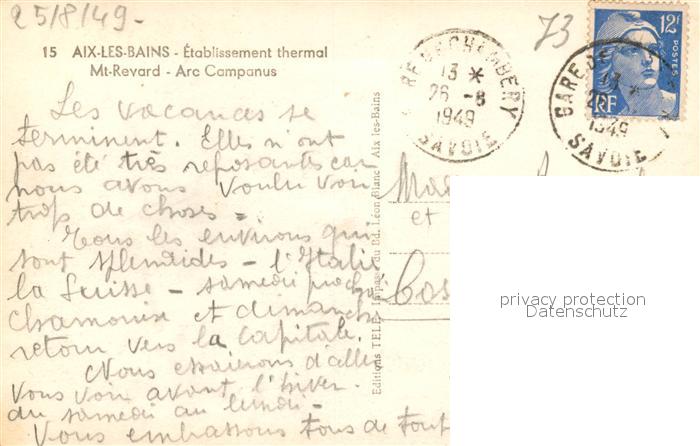 25/8/49-
73
15 AIX-LES-BAINS - Établissement thermal
Mt-Revard - Arc Campanus
12F
POSTES
RF
GARE DE CHAMBERY
13 *
26 -8
1949
SAVOIE
GARE DE
13 *
1949
SAVOIE
Les vacances se
terminent. Elles n'ont
pas été très reposantes car
nous avons voulu voir
trop de choses -
Tous les environs qui
sont splendides - l'Italie
la Suisse - samedi proch
Chamonix et dimanche
retour vers la Capitale.
Nous essaierons d'aller
vous voir avant l'hiver.
du samedi au lundi -
Vous embrassons tous de tout
Editions TELE, Impasse du Bd. Léon Blanc, Aix les-Bains
et
privacy protection
Datenschutz